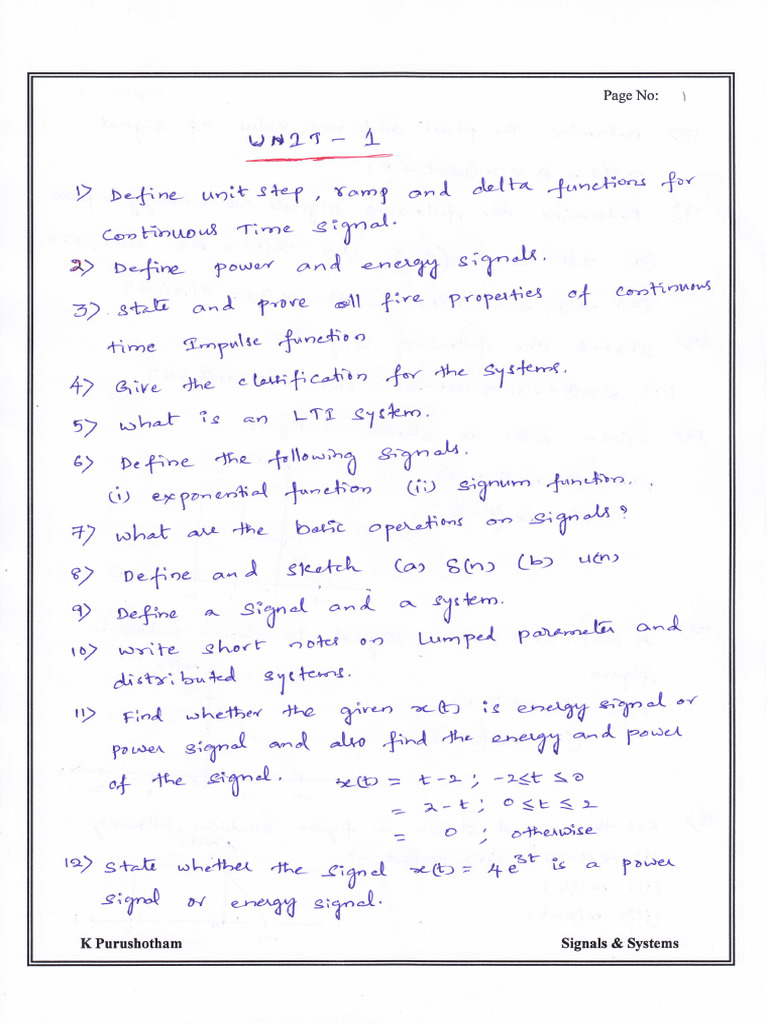 Page No: 1
UNIT - 1
1) Define unit step, ramp and delta functions for
Continuous Time signal.
2) Define power and energy signals.
3) State and prove all five properties of continuous
time Impulse function
4) Give the classification for the systems.
5) what is an LTI system.
6) Define the following signals.
(i) exponential function (ii) signum function.
7) what are the basic operations on signals?
8) Define and sketch (a) δ(n) (b) u(n)
9) Define a signal and a system.
10) write short notes on Lumped parameter and
distributed systems.
11) Find whether the given x(t) is energy signal or
power signal and also find the energy and power
of the signal. x(t) = t-2 ; -2≤t ≤0
= 2-t ; 0≤t≤2
= 0 ; otherwise
12) State whether the signal x(t) = 4e^3t is a power
signal or energy signal.
K Purushotham Signals & Systems